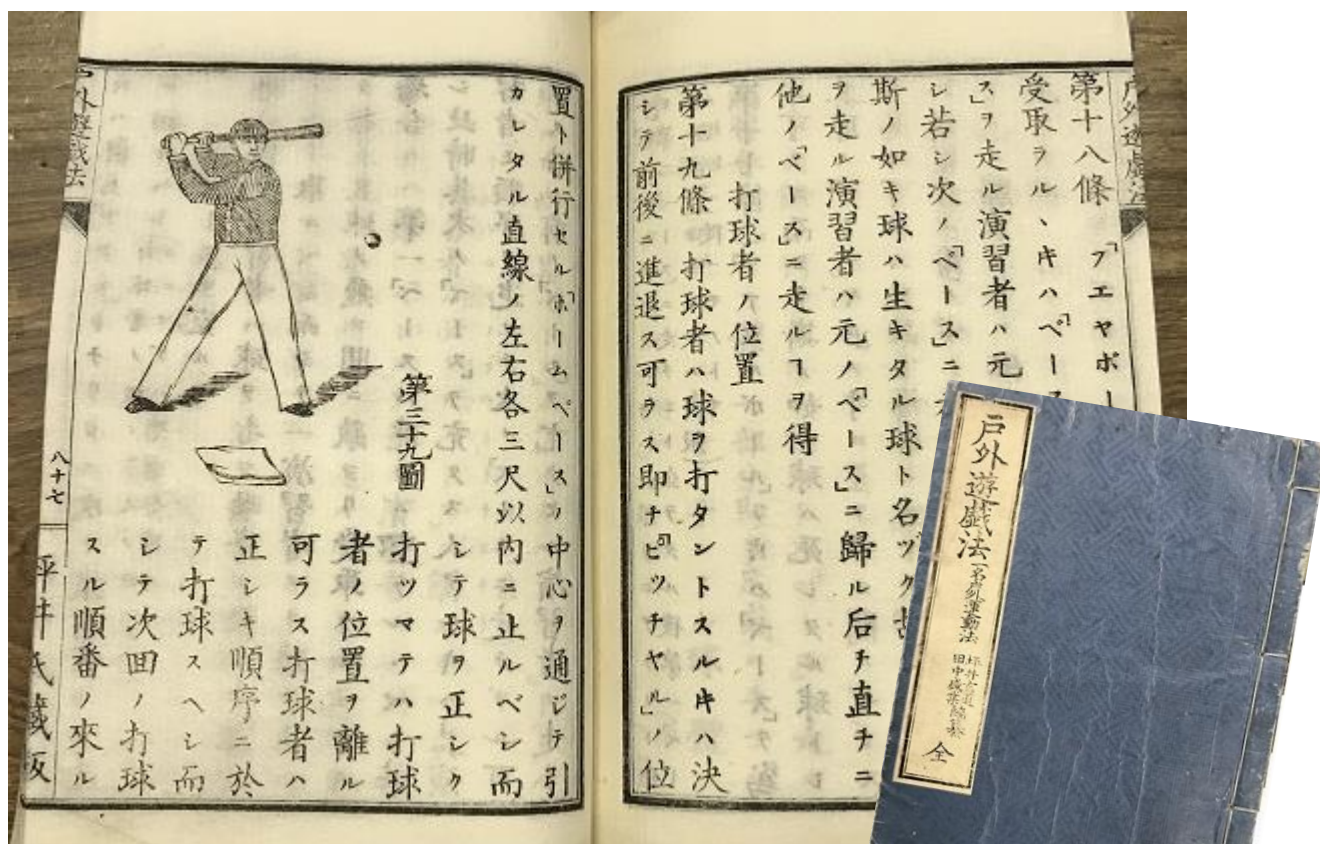 戶外遊戲法
第十八條　「フエヤボー
受取ラルヽトキハ「ベース
ス」ヲ走ル演習者ハ元
シ若シ次ノ「ベース」ニ
斯ノ如キ球ハ生キタル球ト名ヅク
ヲ走ル演習者ハ元ノ「ベース」ニ歸ル后チ直チニ
他ノ「ベース」ニ走ルヿヲ得
打球者ノ位置
第十九條　打球者ハ球ヲ打タントスルトキハ決
シテ前後ニ進退ス可ラス即チ「ピツチヤル」ノ位
置ト併行セル「ホームベース」ノ中心ヲ通ジテ引
カレタル直線ノ左右各三尺以内ニ止ルベシ而
シテ球ヲ正シク
打ツマテハ打球
者ノ位置ヲ離ル
可ラス打球者ハ
正シキ順序ニ於
テ打球スヘシ而
シテ次回ノ打球
スル順番ノ來ル
第三十九圖
戶外遊戲法
八十七
平井氏藏版
戶外遊戯法
一名戶外運動法
坪井玄道
田中盛業編纂
全